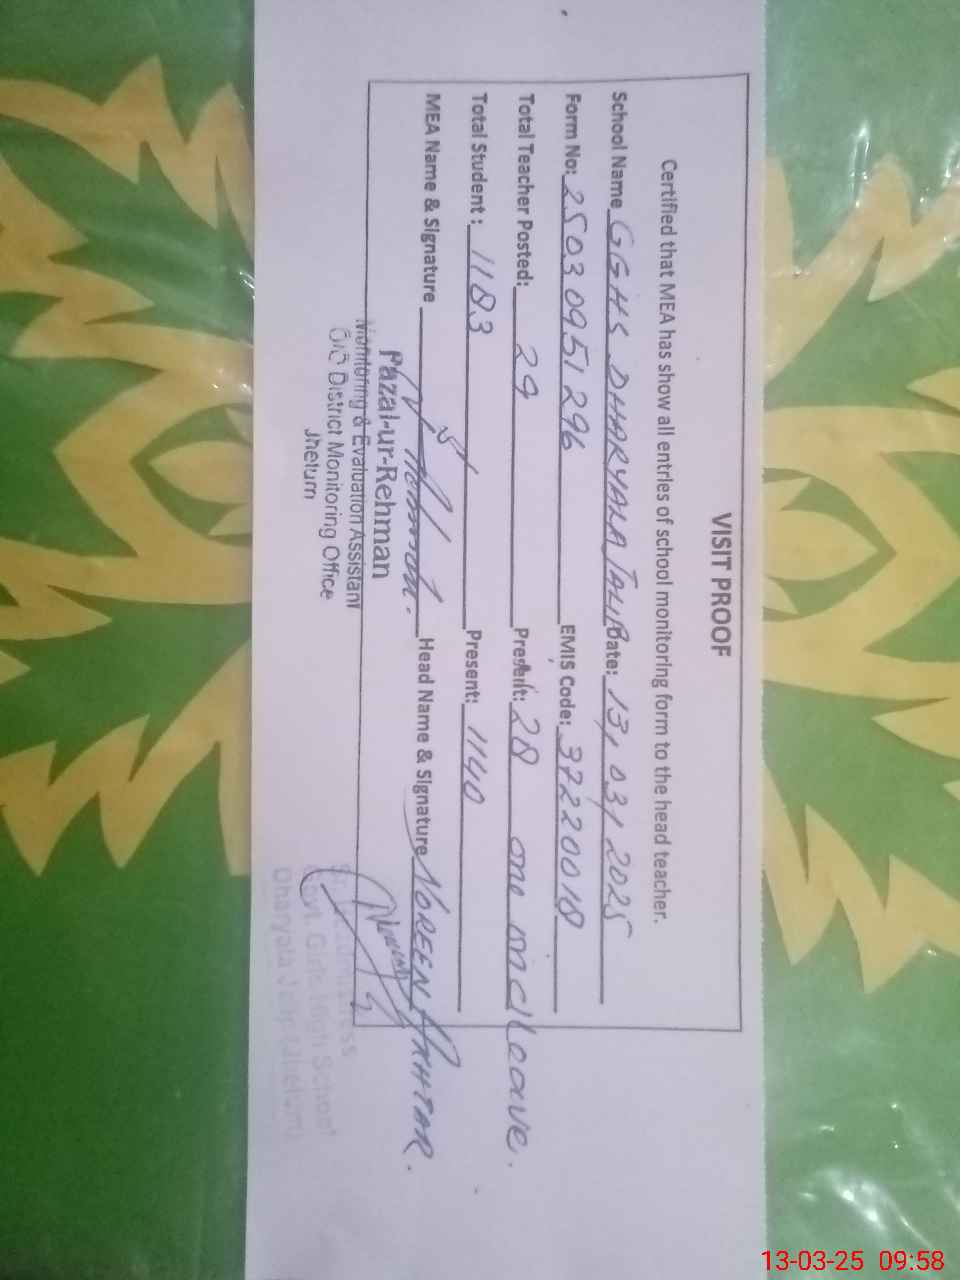 VISIT PROOF
Certified that MEA has show all entries of school monitoring form to the head teacher.
School Name GGHS DHARYALA JALIP Date: 13, 03, 2025
Form No: 25030951296 EMIS Code: 37220018
Total Teacher Posted: 29 Present: 28 one mid leave.
Total Student: 1183 Present: 1140
MEA Name & Signature Head Name & Signature NOREEN AKHTAR.
Fazal-ur-Rehman
Monitoring & Evaluation Assistant
O/O District Monitoring Office
Jhelum
Govt. Girls High School
Dharyala Jalip (Jhelum)
13-03-25 09:58